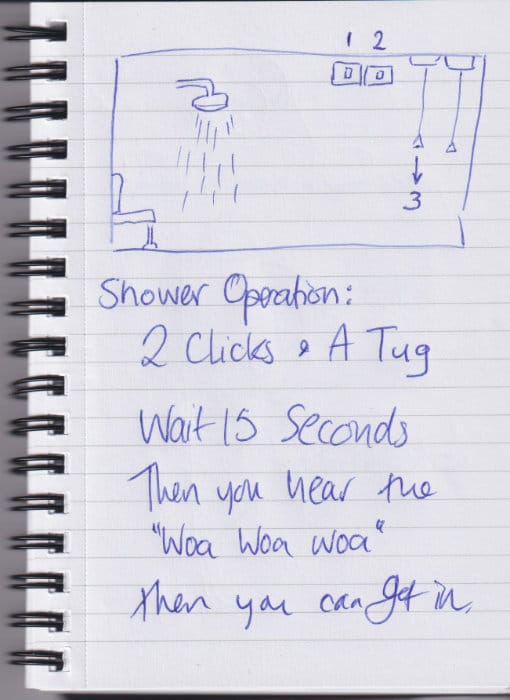 1 2
3
Shower Operation:
2 Clicks & A Tug
Wait 15 Seconds
Then you hear the
"Woa Woa woa"
then you can get in.